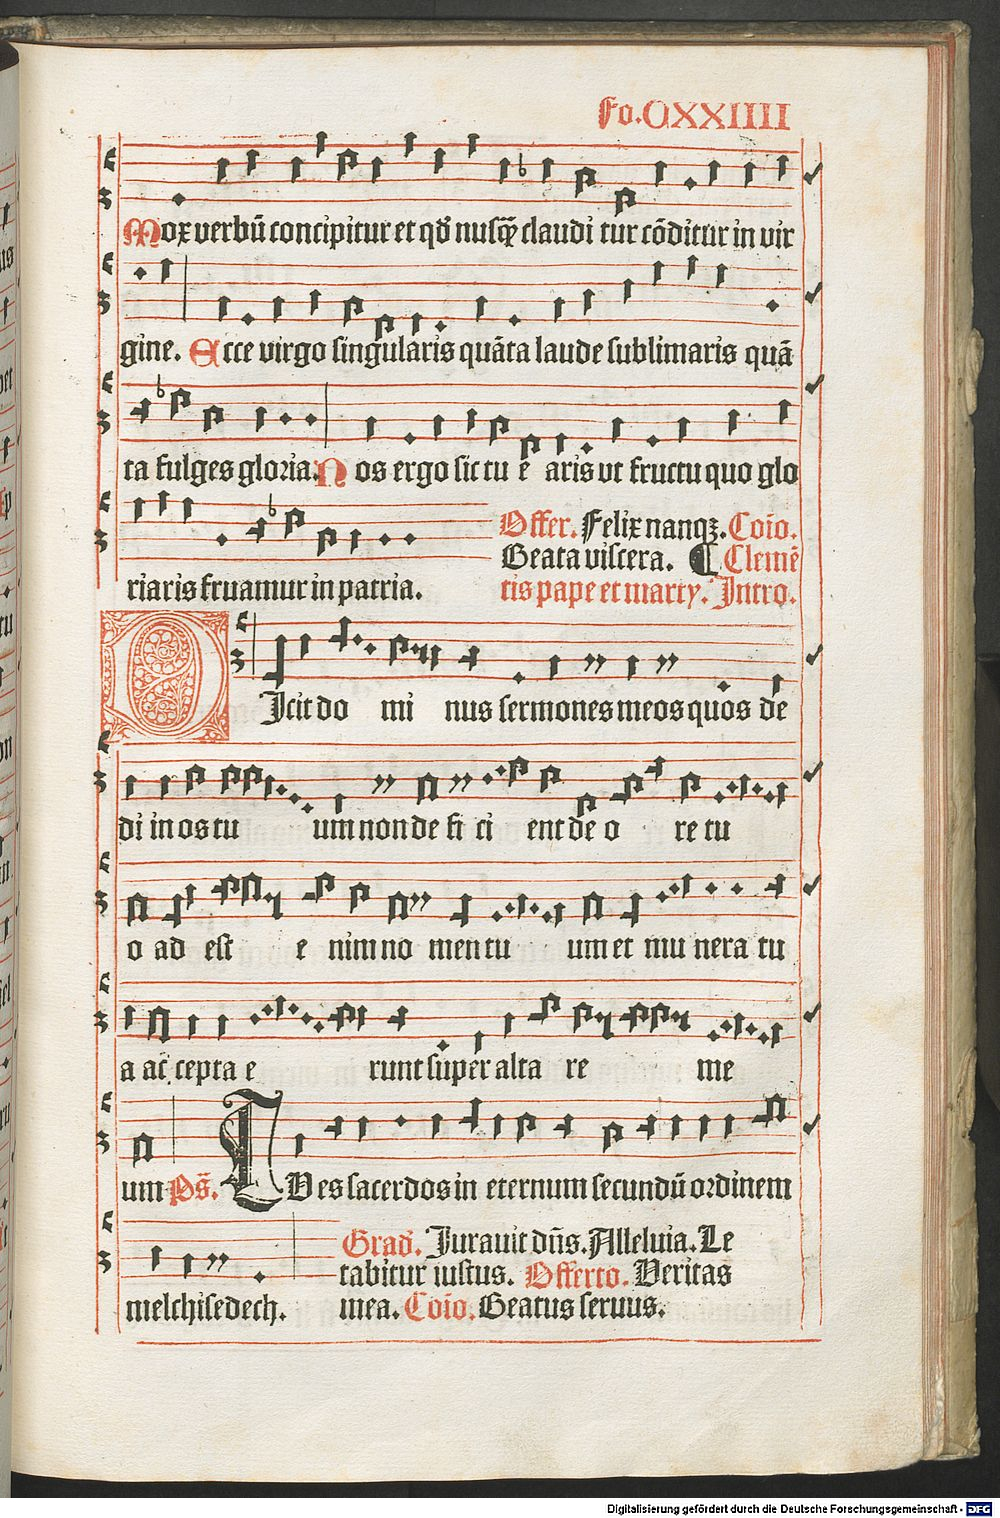 Fo.CXXIIII
Mox verbū concipitur et qđ nusꝙ̄ claudi tur cōditur in vir
gine. Ecce virgo singularis quāta laude sublimaris quā
ta fulges gloria. Nos ergo sic tu e aris ut fructu quo glo
riaris fruamur in patria.
Offer. Felix nanqꝫ. Coio.
Beata viscera. ¶ Clemē
tis pape et marty. Intro.
DIcit do mi nus sermones meos quos de
di in os tu um non de fi ci ent de o re tu
o ad est e nim no men tu um et mu nera tu
a ac cepta e runt super alta re me
um Ps̄. TU es sacerdos in eternum secundū ordinem
melchisedech.
Grad. Iurauit dn̄s. Alleluia. Le
tabitur iustus. Offerto. Veritas
mea. Coio. Beatus seruus.
Digitalisierung gefördert durch die Deutsche Forschungsgemeinschaft - DFG